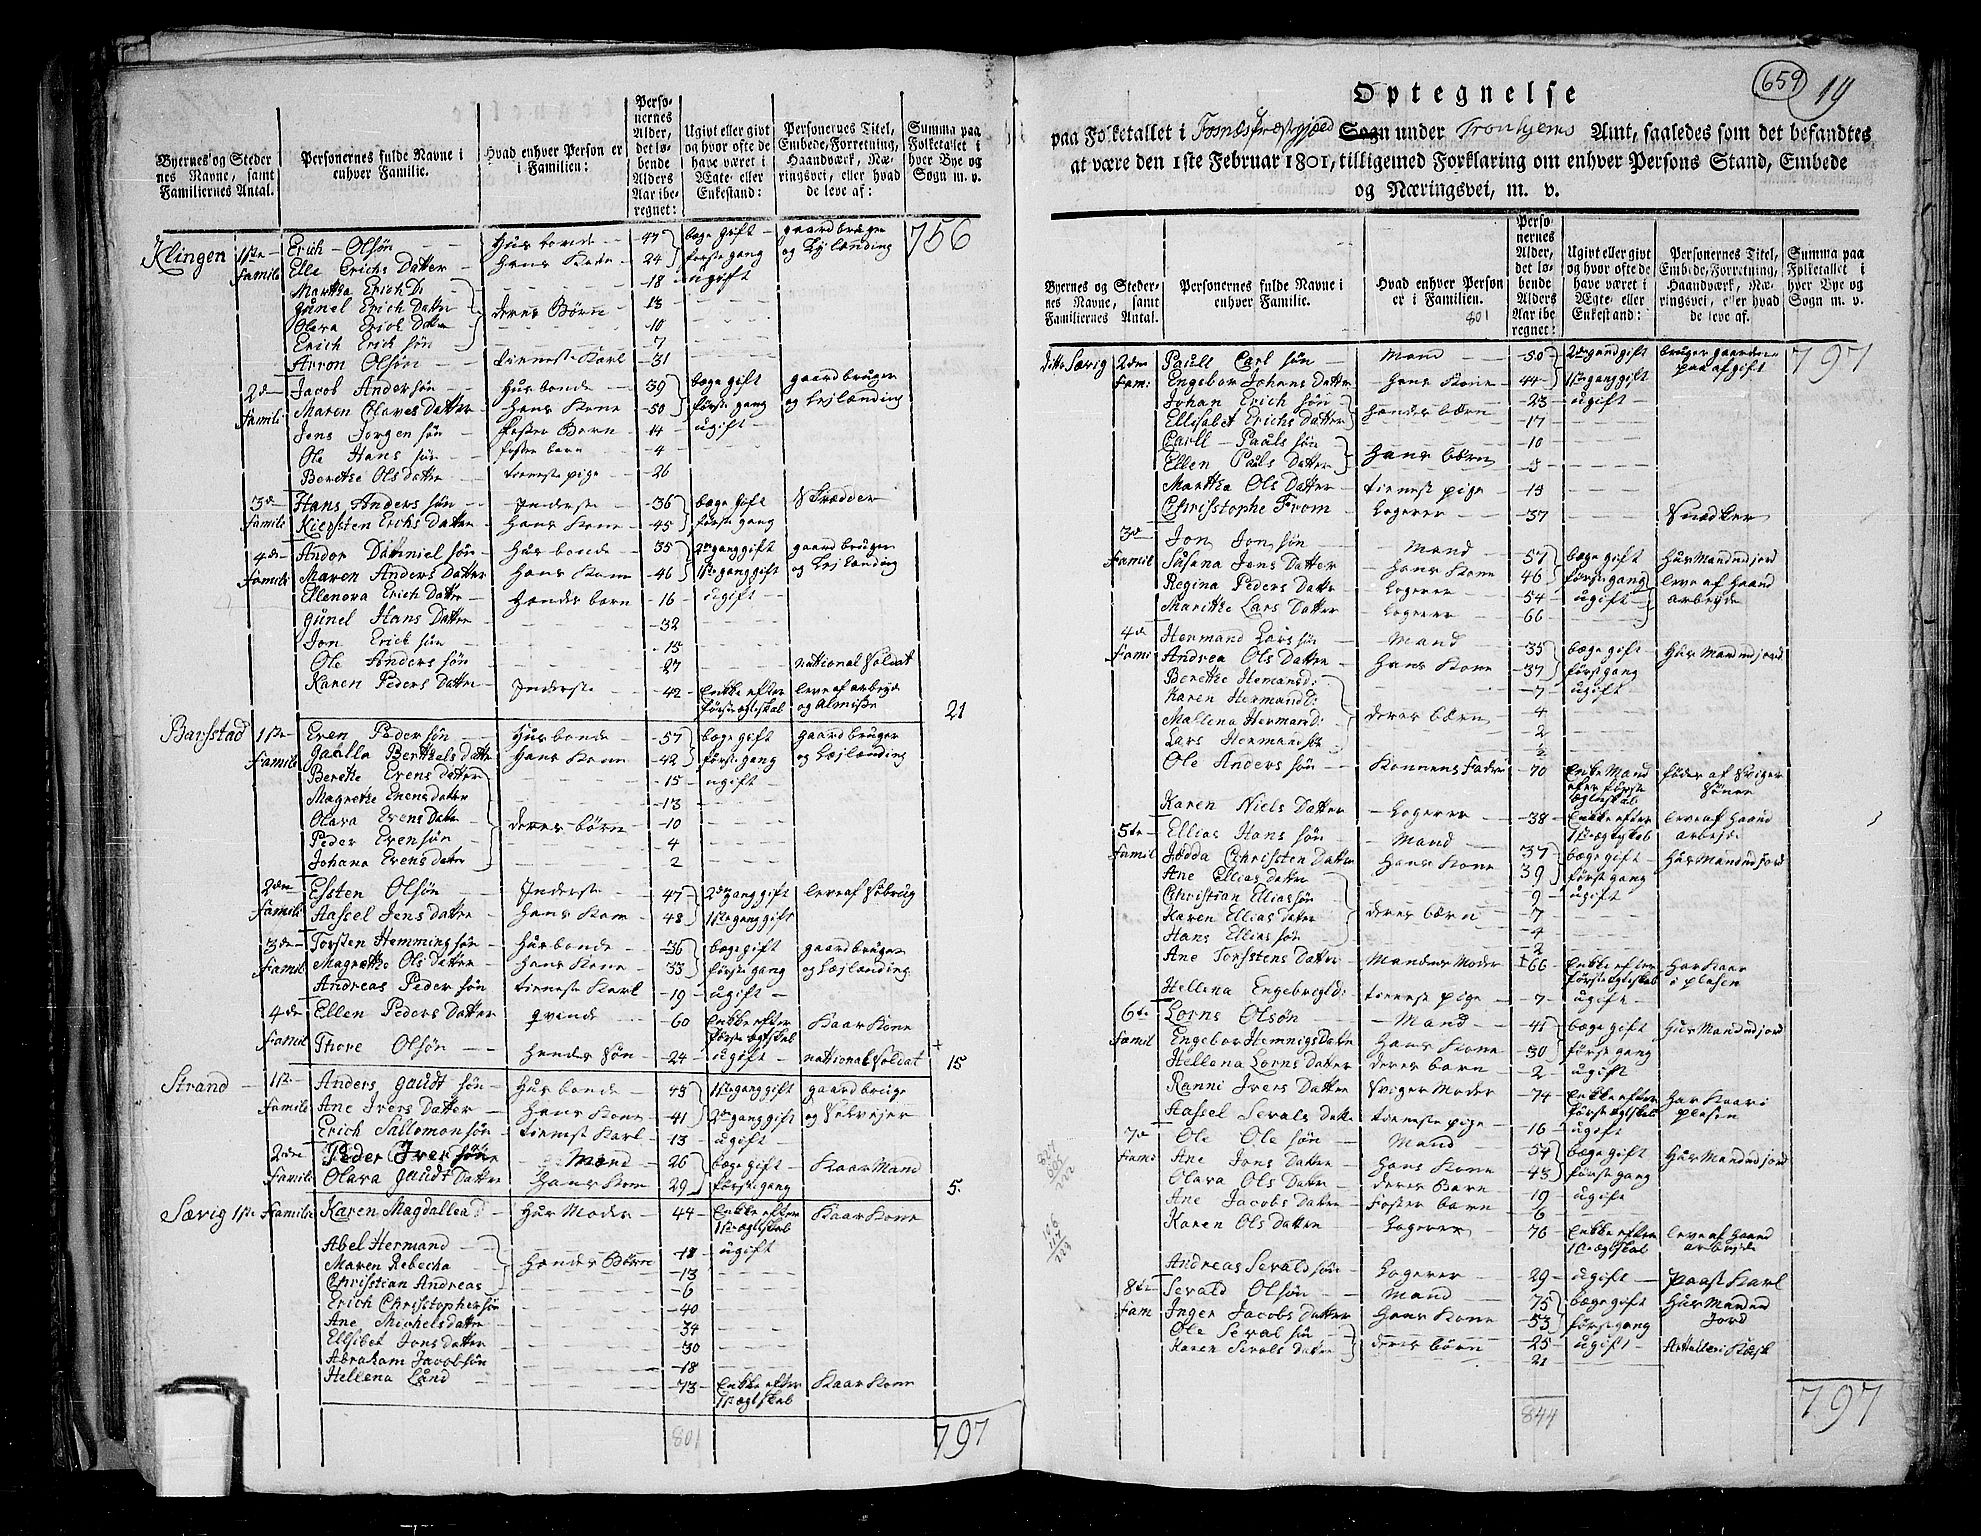 Byernes og Steder nes Navne, samt Familiernes Antal.
Personernes fulde Navne i enhver Familie.
Hvad enhver Person er i Familien:
Personernes Alder, det løbende Alders Aar iberegnet:
Ugivt eller givt og hvor ofte de have været i Ægte- eller Enkestand:
Personernes Titel, Embede, Forretning, Haandværk, Næringsvej, eller hvad de leve af:
Summa paa Folketallet i hver Bye og Sogn m. v.
Klingen 1ste Erich Olsøn Husbonde 47 bægegift gaardbruger 756
Famili Elle Erichs Datter Hans Kone 24 første gang og Lejlending
Martha Erich D: 18 ugift
Gunel Erich Datter deres Børn 13
Olava Erich Datter 10
Erich Erichsøn 7
Arron Olsøn tieneste Karl 31
2den Jacob Andersøn Husbonde 39 bægegift gaardbruger
Famili Maren Olaves Datter Hans Kone 50 første gang og Lejlending
Jens Jørgensøn foster Barn 14 ugift
Ole Hanssøn foster barn 4
Berethe Olsdatter tieneste pige 26
3de Hans Anderssøn Inderste 36 bægegift Skrædder
Famili Kiersten Erichs Datter Hans Kone 45 første gang
4de Andor Danielsøn Husbonde 35 2den gang gift gaardbruger
Famili Maren Anders Datter Hans Kone 46 1ste gang gift og Lejlending
Ellenora Erich Datter Hendes barn 16 ugift
Gunel Hans Datter 32
Jon Erichsøn 15
Ole Anderssøn 27 national Soldat
Karen Peders Datter Inderste 42 Enke efter leve af arbejde
første Egteskab og Almisse 21
Barstad 1ste Even Pedersøn Husbonde 57 bægegift gaardbruger
Famili Gualla Berthels Datter Hans Kone 42 første gang og Lejlending
Berethe Evens datter 15 ugift
Magrethe Evensdatter 13
Olava Evens Datter deres børn 10
Peder Evensøn 4
Johana Evens datter 2
2den Esten Olsøn Inderste 47 2den gang gift leve af Søbrug
Famili Aassel Jens Datter Hans Kone 48 1ste gang gift
3de Torsten Hemmingsøn Husbonde 36 bægegift gaardbruger
Famili Magrethe Ols Datter Hans Kone 33 første gang og Lejlending
Andreas Pedersøn tieneste Karl 19 ugift
4de Ellen Peders Datter qvinde 60 Enke efter Kaar Kone
første Egteskab
Famili Thore Olsøn Hendes Søn 24 ugift national Soldat 15
Strand 1ste Anders Gaudtsøn Husbonde 43 1ste gang gift gaardbruger
Famili Ane Ivers Datter Hans Kone 41 2den gang gift og Selvejer
Erich Sallomonsøn tieneste Karl 13 ugift
2den Peder Iversøn Mand 26 bægegift Kaar Mand
Famili Olava Gaudt Datter Hans Kone 29 første gang 5.
Særig 1ste Famili Karen Magdallea D Hus Moder 44 Enke efter Kaar Kone
1ste Egteskab
Abel Hermand 18 ugift
Maren Rebecha Hendes Børn 13
Christian Andreas 6
Erich Christophersøn 40
Ane Michelsdatter 34
Ellsibet Jonsdatter 30
Abraham Jacobsøn 18
Hellena Lund 73 Enke efter Kaar Kone
1ste Egteskab
801 797
659 19
Optegnelse
paa Folketallet i Fosnæs Præstegield Sogn under Tronhjems Amt, saaledes som det befandtes
at være den 1ste Februar 1801, tilligemed Forklaring om enhver Persons Stand, Embede
og Næringsvei, m. v.
Byernes og Stedernes Navne, samt Familiernes Antal.
Personernes fulde Navne i enhver Familie.
Hvad enhver Person er i Familien.
801
Personernes Alder, det løbende Alders Aar iberegnet:
Ugivt eller givt og hvor ofte de have været i Ægte- eller Enkestand:
Personernes Titel, Embede, Forretning, Haandværk, Næringsvei, eller hvad de leve af.
Summa paa Folketallet i hver Bye og Sogn m. v.
ditto Særig 2den Paull Carlsøn Mand 50 2den gang gift bruger gaarden 797
Fami: Engebor Johans Datter Hans Kone 44 1ste gang gift paa afgift
Johan Erichsøn 23 ugift
Ellisabet Erichs Datter Hendes børn 17
Carll Paulssøn 10
Ellen Pauls Datter Hans børn 5
Martha Ols Datter tieneste pige 13
Christophe From Logerer 37 Snedker
3de Jon Jonsøn Mand 57 bægegift Huusmand med jord
Famil Susana Jens Datter Hans Kone 46 første gang leve af Haand
Regina Peders Datter Logerer 54 ugift arbejde
Marithe Lars Datter Logerer 66
4de Hermand Larssøn Mand 35 bægegift Huus Mand med jord
Fami Andrea Ols Datter Hans Kone 37 første gang
Berethe Hemansd: 7 ugift
Karen Hermand D: 4
Mallena Hermand: deres børn 2
Lars Hermandsøn ½
Ole Anderssøn Konnens Fader 70 Enke Mand födes af Sviger
efter første Sønen
Egteskab
Karen Niels Datter Logerer 38 Enke efter leve af Haand
5te Ellias Hanssøn Mand 37 1ste Egteskab arbejde
Famil Jædda Christen Datter Hans Kone 39 bægegift Huus Mand med jord
Ane Ellias datter 9 første gang
Christian Elliassøn 7 ugift
Karen Ellias Datter deres børn 4
Hans Elliassøn 2
Ane Torstens Datter Mandens Moder 66 Enke efter Har Kaar
første Egteskab i plasen
Hellena Engebregtd: tieneste pige 7 ugift
6te Lorns Olsøn Mand 41 bægegift Huus Mand med jord
Famil Engebor Hemnigs Datter Hans Kone 30 første gang
Hellena Lorns Datter deres barn 2 ugift
Ranni Ivers Datter Sviger Moder 74 Enke efter Har Kaar i
første Egteskab plasen
Aassel Sevals Datte tieneste pige 16 ugift
7de Ole Olesøn Mand 54 bægegift Huus Mand med jord
Fami Ane Jons Datter Hans Kone 43 første gang
Olava Ols Datter deres Barn 19 ugift
Ane Jacobs Datter Foster barn 6
Karen Ols Datter Logerer 76 Enke efter leve af Haand
1ste Egteskab arbejde
Andreas Sevaldsøn Logerer 29 ugift Paast Karl
8de Sevald Olsøn Mand 75 bægegift Huus Mand med
Fam Inger Jacobs Datter Hans Kone 53 første gang Jord
Ole Sevalsøn deres børn 25 ugift
Karen Sevals Datter 21
844 797